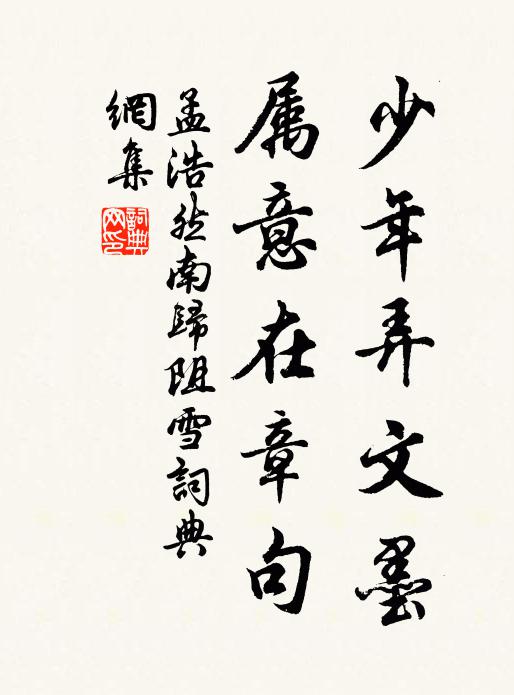 少年弄文墨
属意在章句
孟浩然南歸阻雪詞典
網集
詞典网印